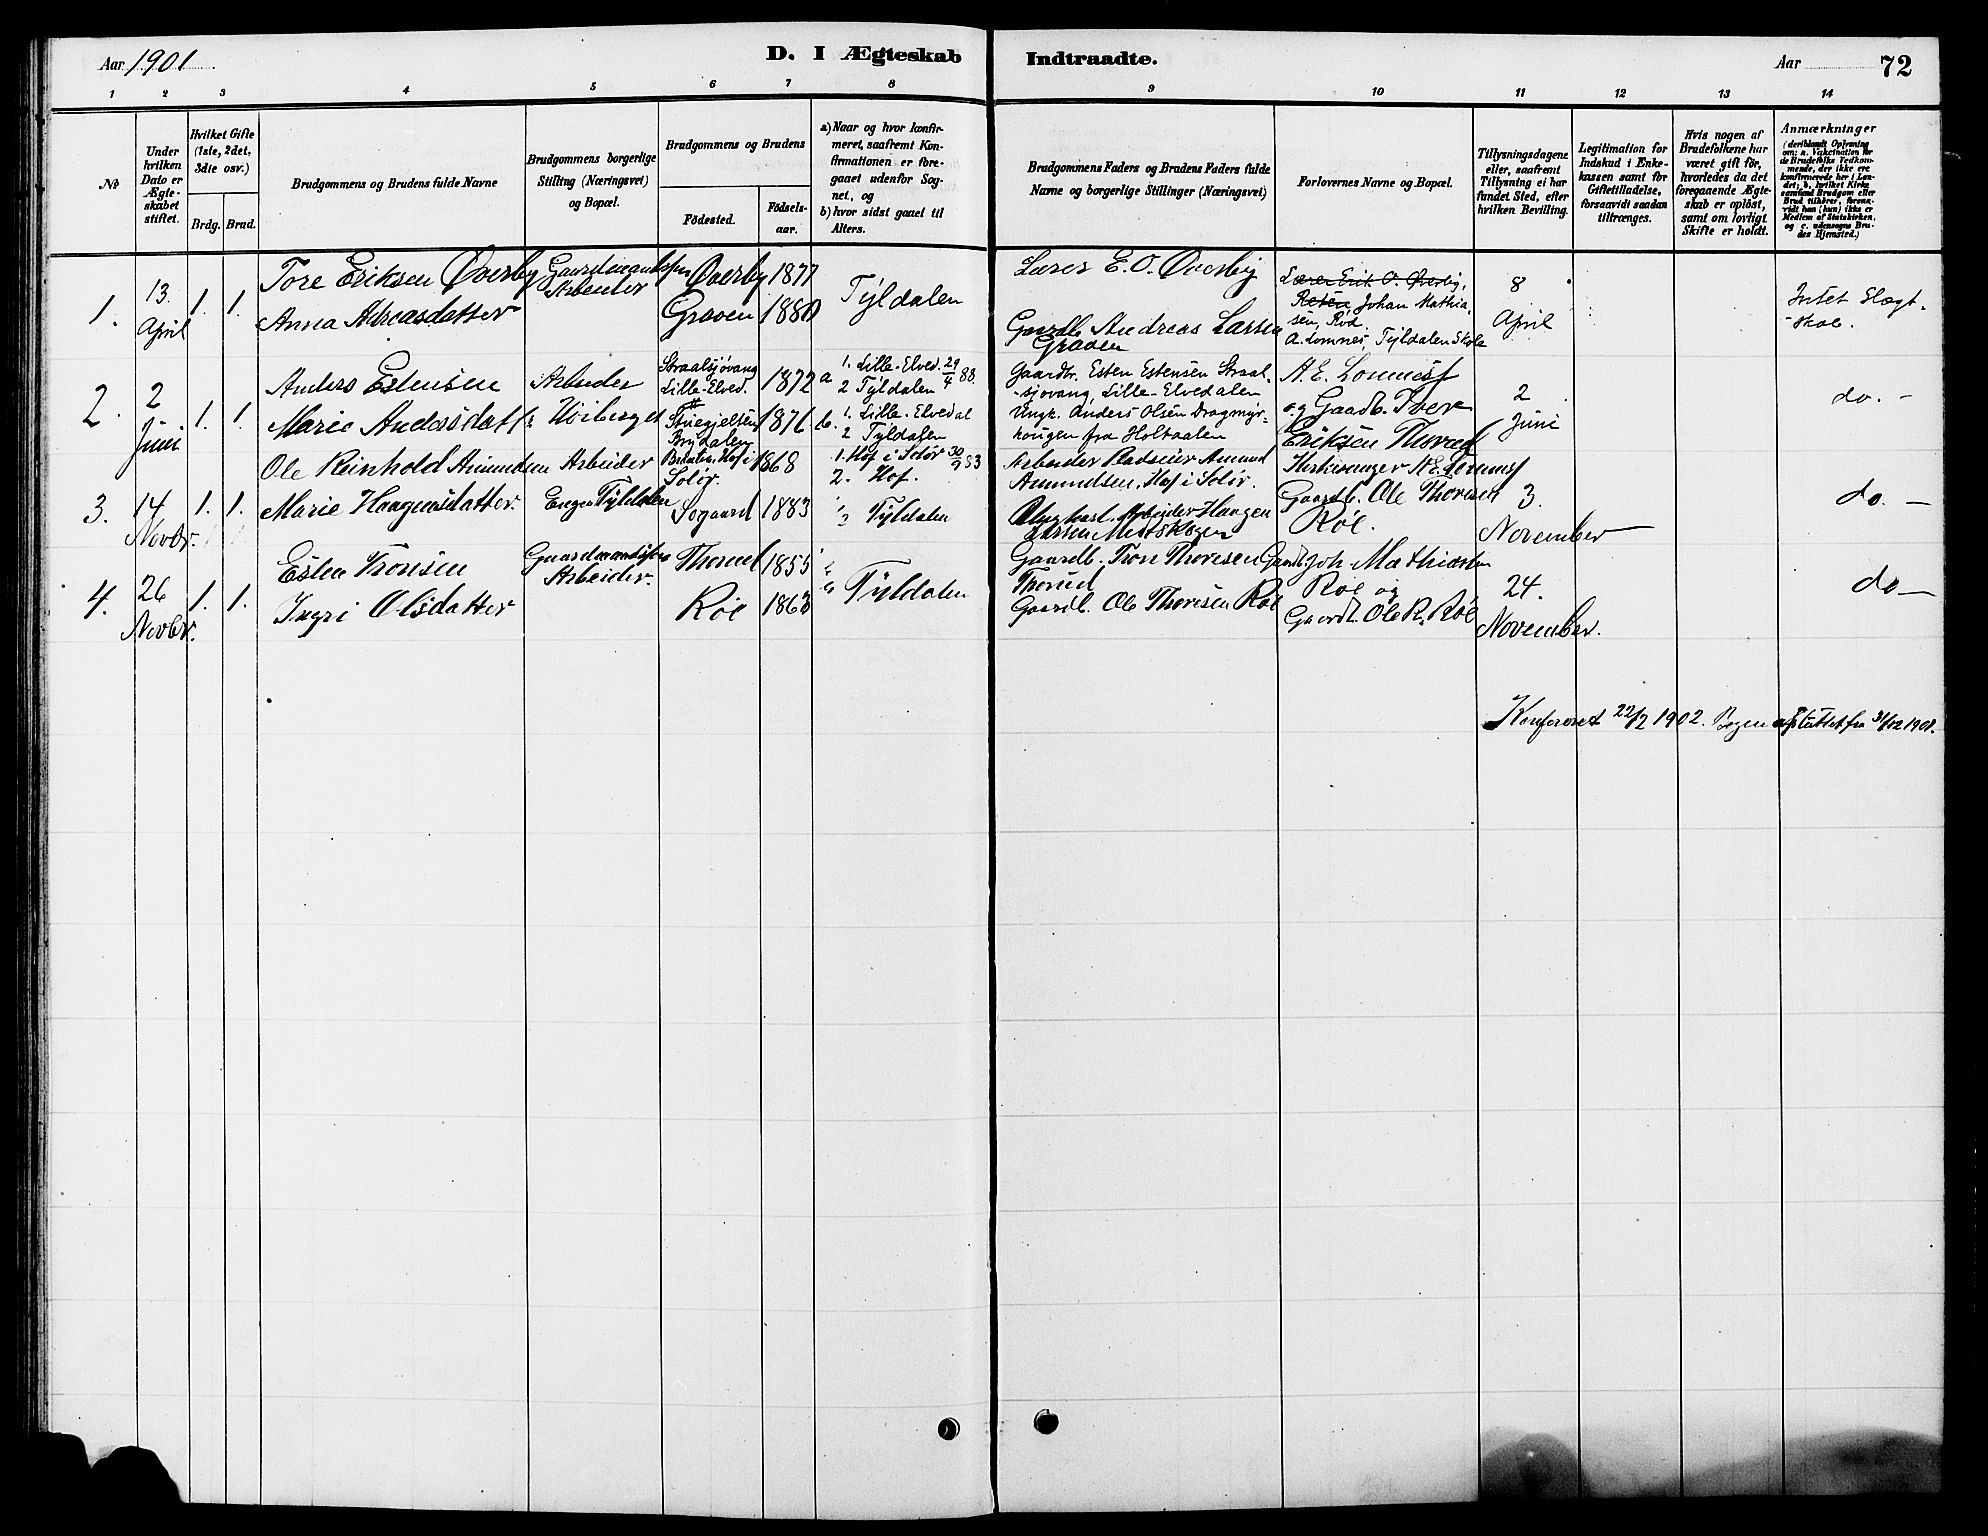 Aar 1901
D. I Ægteskab
Indtraadte.
Aar
72
1 2 3 4 5 6 7 8 9 10 11 12 13 14
№
Under
hvilken
Dato er
Ægte-
skabet
stiftet.
Hvilket Gifte
(1ste, 2det,
3die osv.)
Brdg. Brud.
Brudgommens og Brudens fulde Navne
Brudgommens borgerlige
Stilling (Næringsvei)
og Bopæl.
Brudgommens og Brudens
Fødested.
Fødsels-
aar.
a) Naar og hvor konfir-
meret, saafremt Kon-
firmationen er fore-
gaaet udenfor Sog-
net, og
b) hvor sidst gaaet til
Alters.
Brudgommens Faders og Brudens Faders fulde
Navne og borgerlige Stillinger (Næringsvei)
Forlovernes Navne og Bopæl.
Tillysningsdagene
eller, saafremt
Tillysning ei har
fundet Sted, efter
hvilken Bevilling.
Legitimation for
Indskud i Enke-
kassen samt for
Giftetilladelse,
forsaavidt saadan
tiltrænges.
Hvis nogen af
Brudefolkene har
været gift før,
hvorledes da det
foregaaende Ægte-
skab er opløst,
samt om lovligt
Skifte er holdt.
Anmærkninger
(deriblandt Oplysning
om: a. Vakcination for
de Brudefolks Vedkom-
mende, der ikke ere
konfirmerede her i Lan-
det, b. hvilket Kirke-
samfund Brudgom eller
Brud tilhører, forsaa-
vidt han (hun) ikke er
Medlem af Statskirken,
og c. udensogns Bru-
des Hjemsted.)
1.
13.
April
1. 1.
Tore Eriksen Øverby
Anna Andreasdatter
Arbeider
Øverby 1877
Graven 1880
Tyldalen
Lærer E. O. Øverby
Gaardb. Andreas Larsen
Graven
Lærer Erik O. Øverby,
Johan Mathia-
sen, Rød.
A. Lomnes, Tyldalen Skole
8
April
Intet Slægt-
skab.
2.
2
Juni
1. 1.
Anders Estensen
Marie Andersdatt
Arbeider
Høiberget
Straalsjøvang
Lille-Elved. 1872
Stuegjelsen
Brydalen 1876
a 1. Lille-Elved. 29/4 88.
2 Tyldalen
b. 1. Lille-Elvedal
2 Tyldalen
Gaardbr. Esten Estensen Straal-
sjøvang, Lille-Elvedalen
Ungk. Anders Olsen Dragmyr-
hougen fra Holtaalen
A. E. Lomnes
og Gaardb. Iver
Eriksen Thorud
2
Juni
do. -
3.
14
Novbr.
1. 1.
Ole Reinhold Amundsen
Marie Haagensdatter
Arbeider
Engen Tyldalen
Hof i
Solør. 1868
Søgaard 1883
1. Hof i Solør 30/9 83
2. Hof.
2 Tyldalen
Arbeider Pladseier Amund
Amundsen, Hof i Solør.
Arbeider Haagen
Larsen
Kirkesanger A. E. Lomnes
Gaardb. Ole Thoresen
Røe.
3.
November
do. -
4.
26
Novbr.
1. 1.
Esten Tronsen
Ingri Olsdatter
Arbeider.
Thorud 1855
Røe 1863
Tyldalen
Gaardb. Tron Thoresen
Thorud
Gaardb. Ole Thoresen Røe
Gaardb. Joh. Mathiasen
Røe og
Gaardb. Ole R. Røe
24.
November.
do -
Konfereret 22/2 1902. Bogen afsluttet fra 31/12 1901.